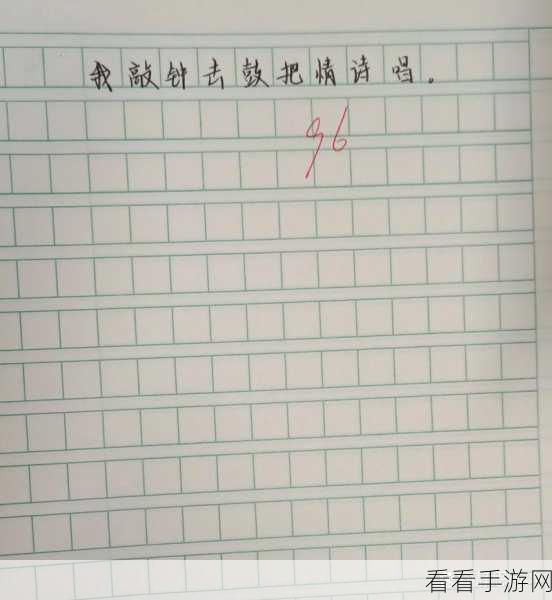 我敲钟击鼓把情诗唱。
96
看看手游网